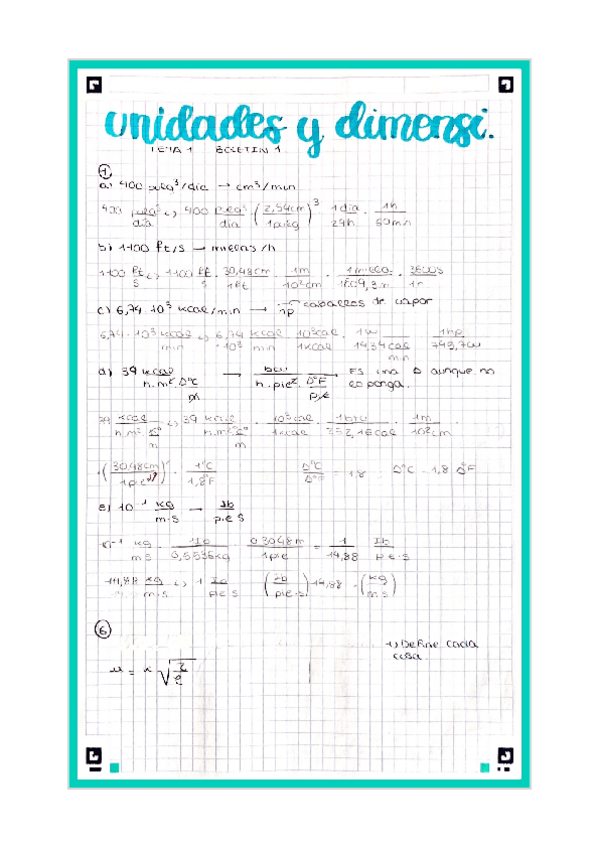 unidades y dimensi.
TEMA 1 BOLETIN 1
1
a) 400 pulg³/día → cm³/min
400 pulg³/día ↪ 400 pulg³/día · (2,54cm/1pulg)³ · 1 día/24h · 1h/60min
b) 1100 ft/s → millas/h
1100 ft/s ↪ 1100 ft/s · 30,48cm/1ft · 1m/10²cm · 1milla/1609,3m · 3600s/1h
c) 6,74·10³ kcal/min → hp caballos de vapor
6,74·10³ kcal/min ↪ 6,74·10³ kcal/min · 10³cal/1kcal · 1w/14,34 cal/min · 1hp/745,7w
d) 39 kcal/h·m²·Δ°C/m → btu/h·pie²·Δ°F/pie Es una Δ aunque no lo ponga.
39 kcal/h·m²·Δ°C/m ↪ 39 kcal/h·m²·Δ°C/m · 10³cal/1kcal · 1btu/252,16cal · 1m/10²cm ·
· (30,48cm/1pie) · 1°C/1,8°F Δ°C/Δ°F = 1,8 Δ°C = 1,8 Δ°F
e) 10⁻¹ kg/m·s → lb/pie·s
10⁻¹ kg/m·s · 1lb/0,5536kg · 0,3048m/1pie = 1/14,88 lb/pie·s
14,88 kg/m·s ↪ 1 lb/pie·s (lb/pie·s) 14,88 = (kg/m·s)
6
↪ Define cada
cosa